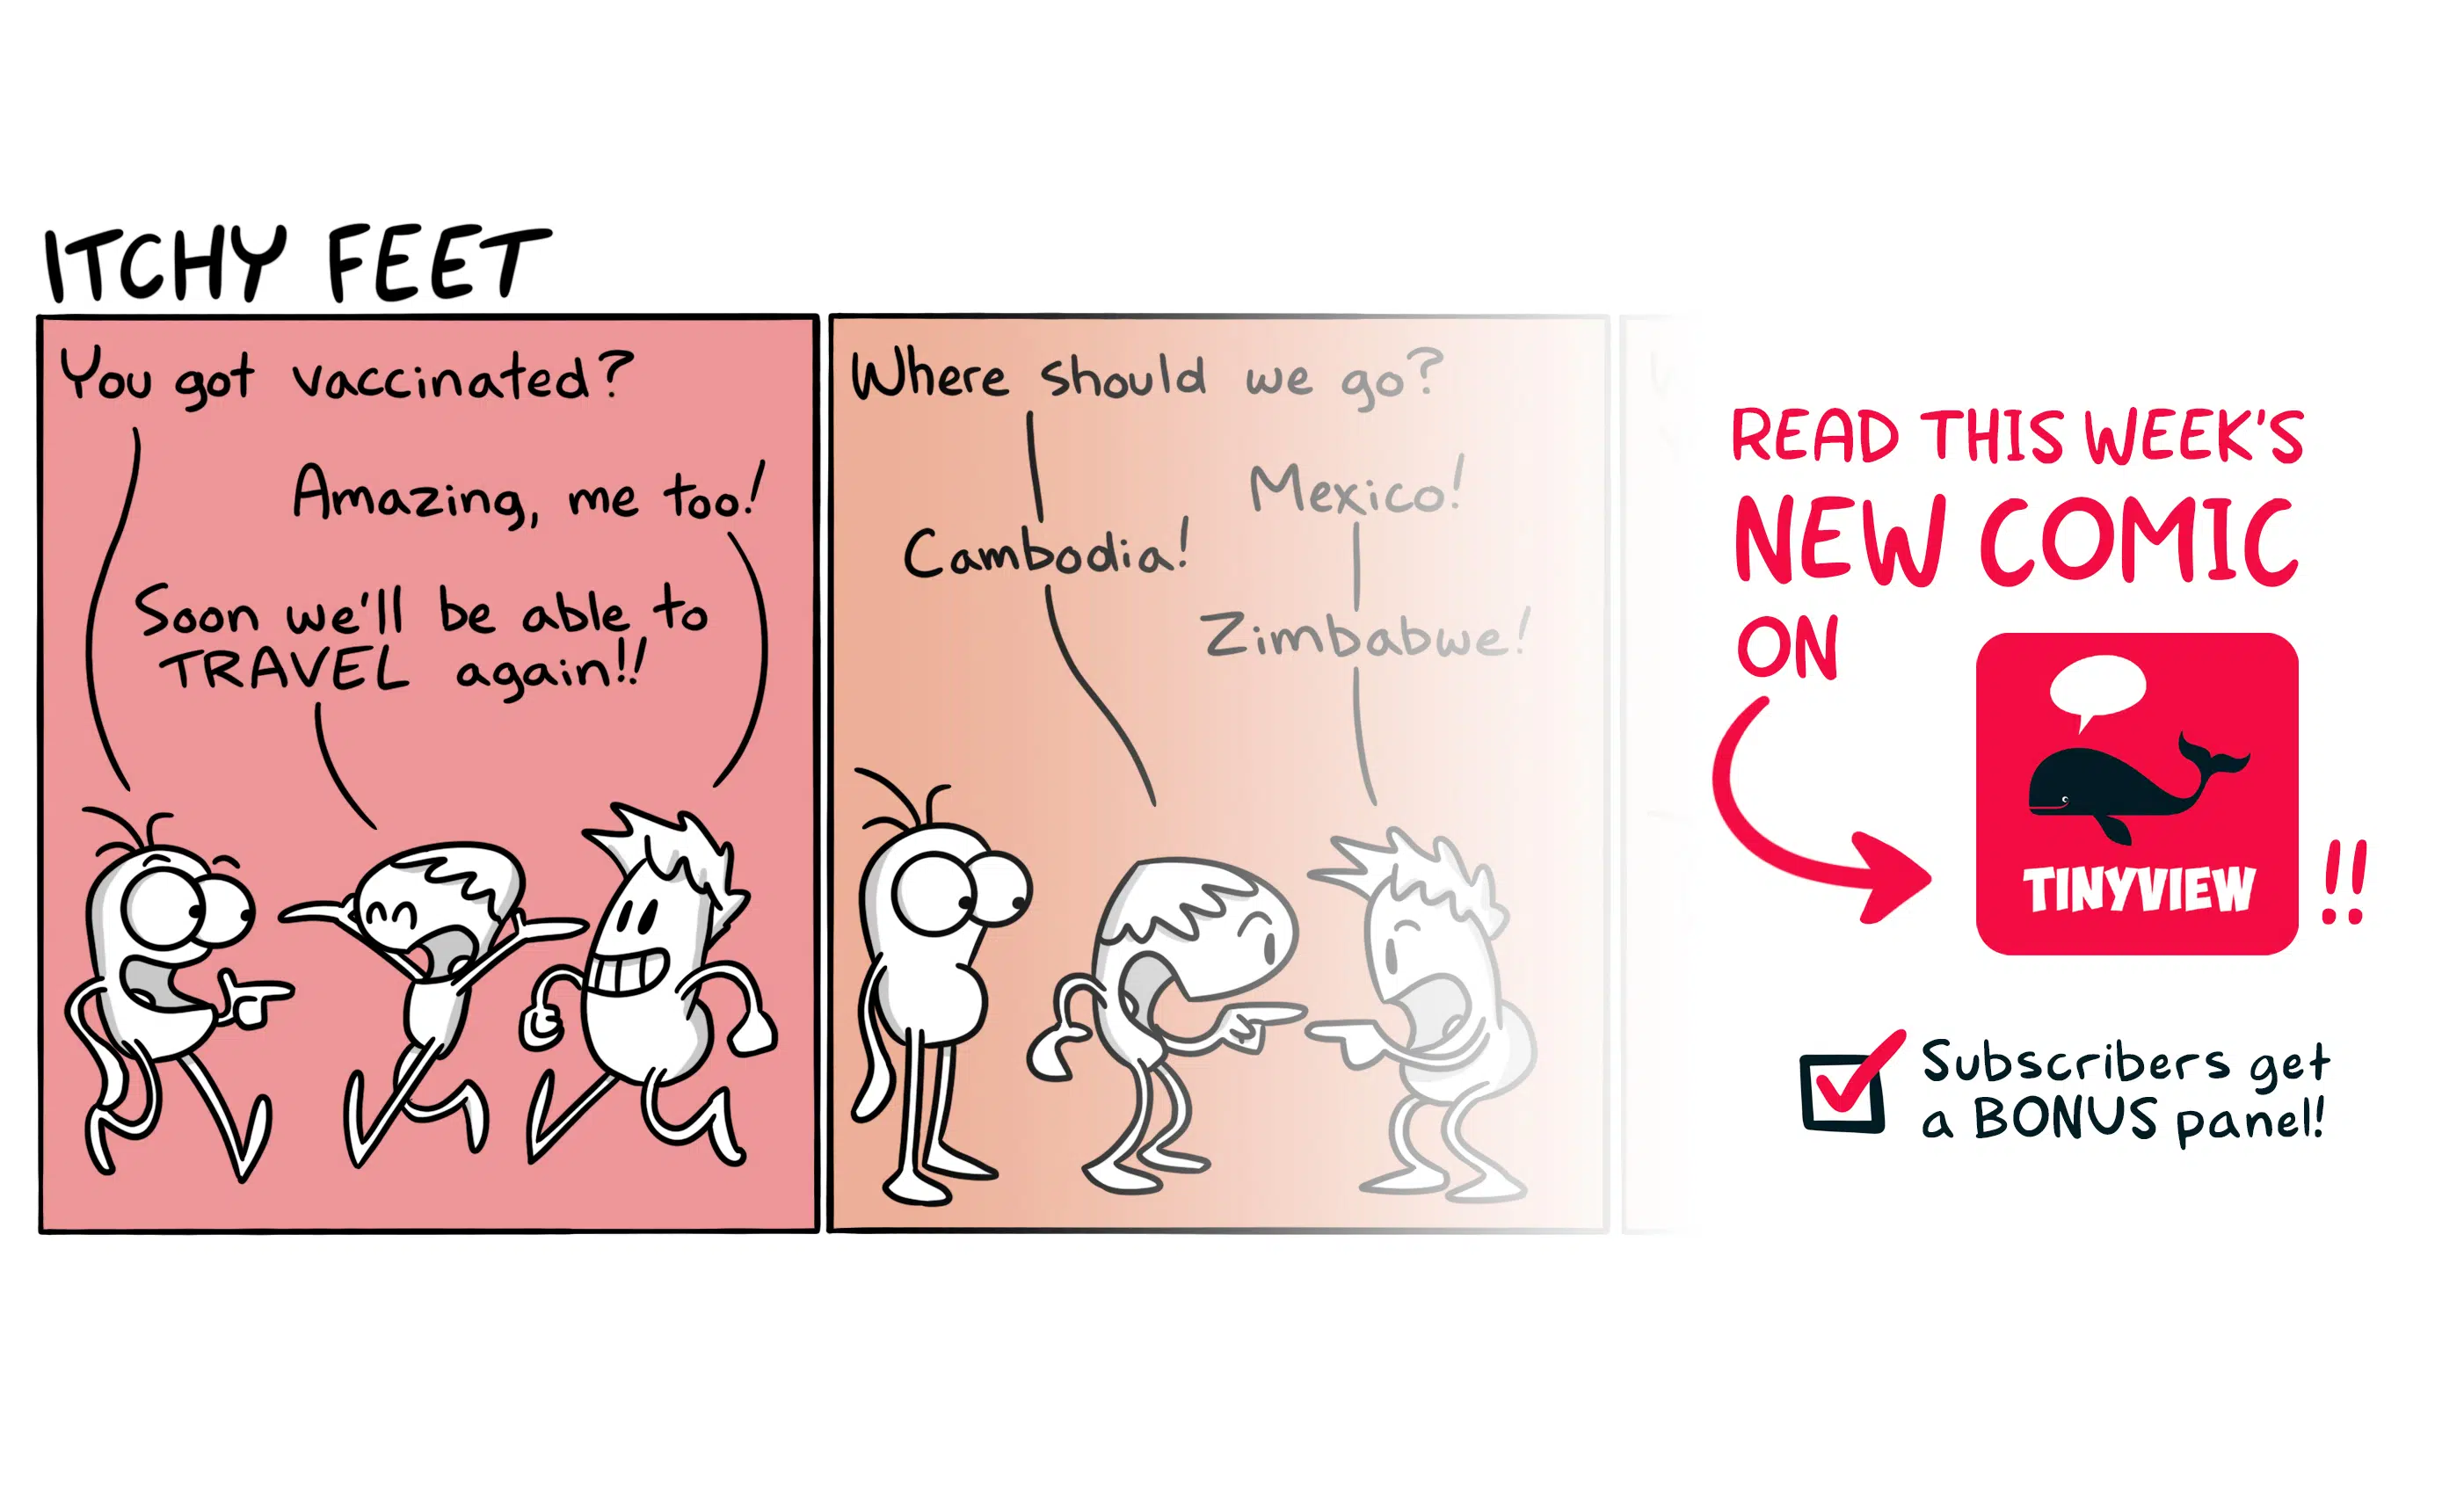 ITCHY FEET
You got vaccinated?
Amazing, me too!
Soon we'll be able to
TRAVEL again!!
Where should we go?
Cambodia!
Mexico!
Zimbabwe!
READ THIS WEEK'S
NEW COMIC
ON
TINYVIEW
!!
Subscribers get
a BONUS panel!